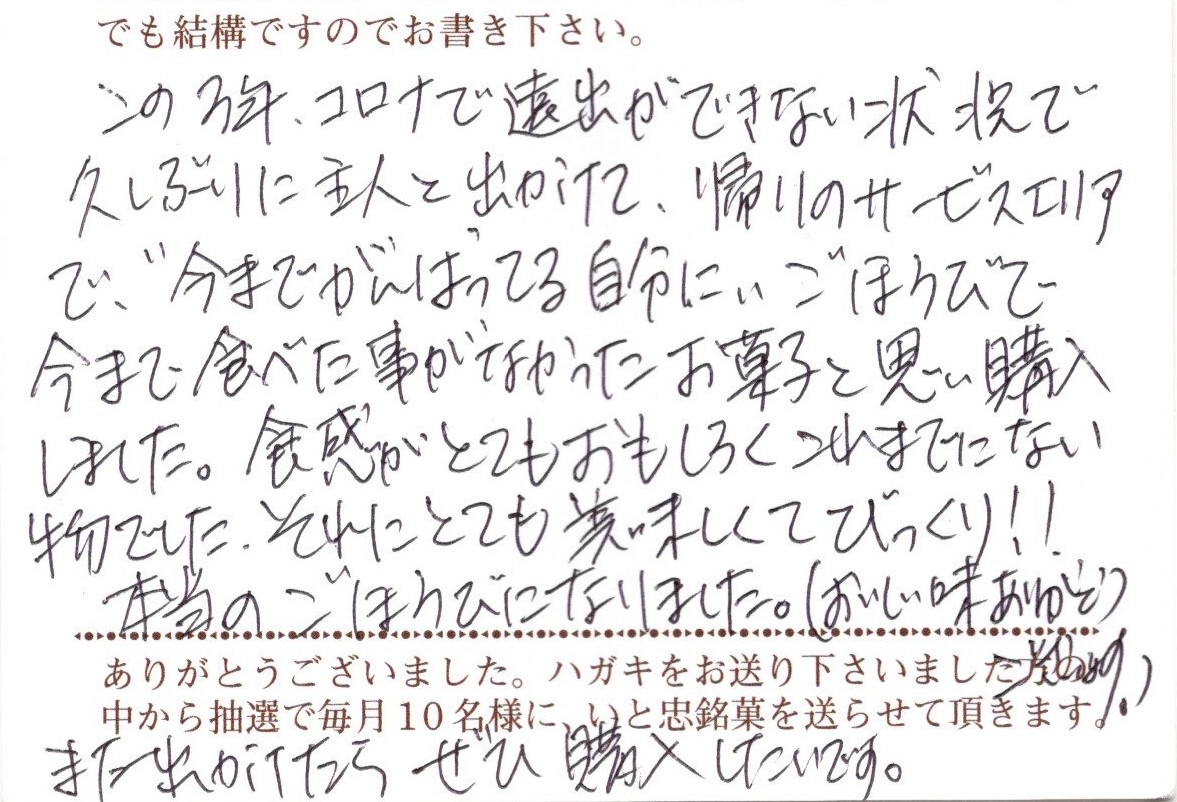 でも結構ですのでお書き下さい。
この3年、コロナで遠出ができない状況で
久しぶりに主人と出かけて、帰りのサービスエリア
で、"今までがんばってる自分に"ごほうびで
今まで食べた事がなかったお菓子と思い購入
しました。食感がとてもおもしろくこれまでにない
物でした。それにとても美味しくてびっくり!!
本当のごほうびになりました。(おいしい味ありがとう
ございます。)
ありがとうございました。ハガキをお送り下さいました方の
中から抽選で毎月10名様に、いと忠銘菓を送らせて頂きます。
また出かけたら ぜひ 購入したいです。